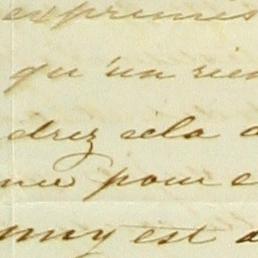 exprimés
qu'un rien
drez cela
me pour
est